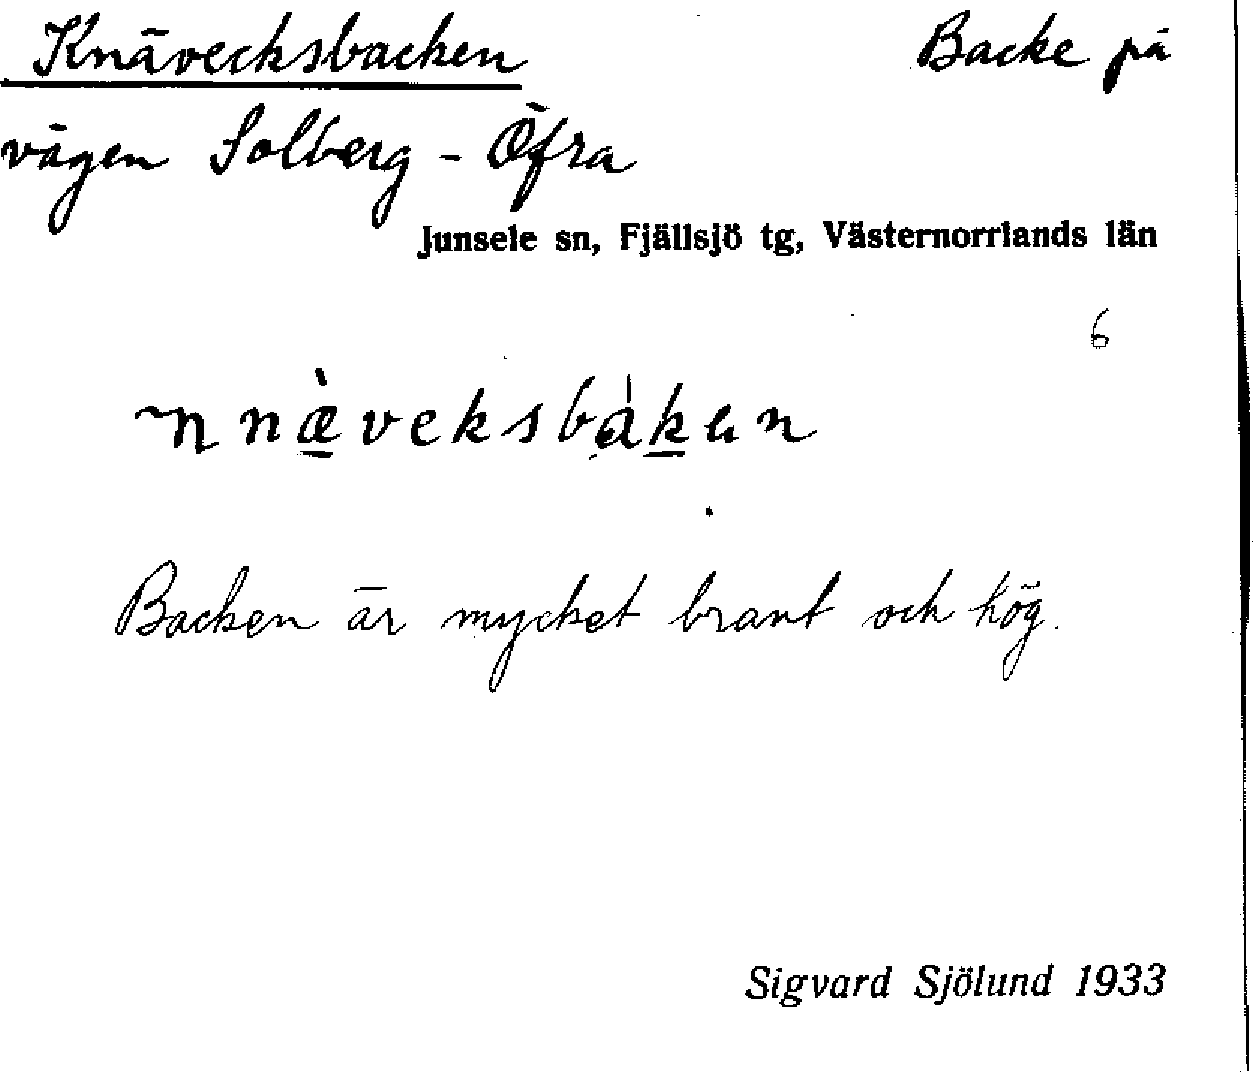 Knävecksbacken Backe på
vägen Solberg - Öfra
Junsele sn, Fjällsjö tg, Västernorrlands län
6
Backen är mycket brant och hög.
Sigvard Sjölund 1933